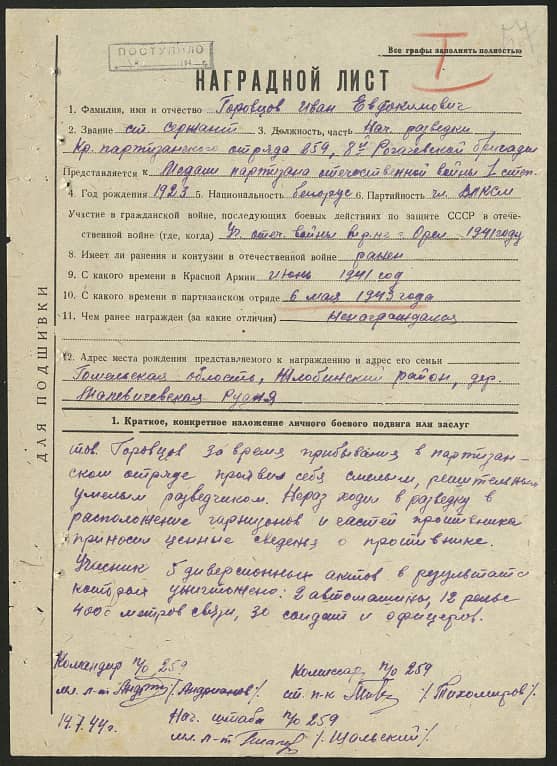 57
ПОСТУПИЛО
Все графы заполнять полностью
I
НАГРАДНОЙ ЛИСТ
1. Фамилия, имя и отчество Горовцов Иван Евдокимович
2. Звание ст. сержант 3. Должность, часть Нач. разведки
Кр. партизанского отряда 259, 8й Рогачевской бригады
Представляется к Медали партизана отечественной войны I степ.
4. Год рождения 1923 5. Национальность белорус 6. Партийность чл. ВЛКСМ
Участие в гражданской войне, последующих боевых действиях по защите СССР в отече-
ственной войне (где, когда) Уч. отеч. войны в р-не г. Орел 1941 году
8. Имеет ли ранения и контузии в отечественной войне ранен
9. С какого времени в Красной Армии июнь 1941 год
10. С какого времени в партизанском отряде 6 мая 1943 года
11. Чем ранее награжден (за какие отличия) Ненаграждался
12. Адрес места рождения представляемого к награждению и адрес его семьи
Гомельская область, Жлобинский район, дер.
Малевичевская Рудня
ДЛЯ ПОДШИВКИ
1. Краткое, конкретное изложение личного боевого подвига или заслуг
тов. Горовцов за время прибывания в партизан-
ском отряде проявил себя смелым, решительным
умелым разведчиком. Нераз ходил в разведку в
расположение гарнизонов и частей противника
приносил ценные сведения о противнике.
Участник 5 диверсионных актов в результате
которых уничтожено: 2 автомашины, 12 рельс
400 метров связи, 30 солдат и офицеров.
Командир п/о 259
мл. л-т /Андрианов/.
Комиссар п/о 259
ст. п-к /Тихомиров/.
19.7.44г. Нач. штаба п/о 259
мл. л-т /Щальский/.